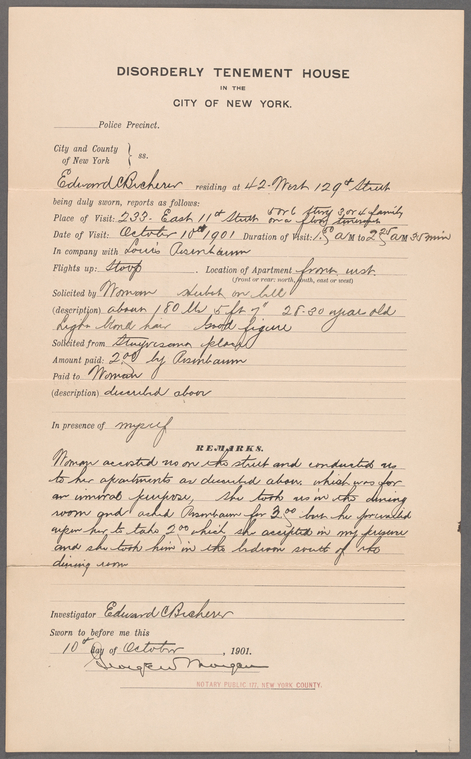 DISORDERLY TENEMENT HOUSE
IN THE
CITY OF NEW YORK.
Police Precinct.
City and County
of New York } ss.
Edward C Becherer residing at 42 West 129th Street
being duly sworn, reports as follows:
Place of Visit: 233 East 11th Street 5 or 6 story 3 or 4 family
Date of Visit: October 10th 1901 Duration of Visit: 1.50 am to 2 25 am 35 min
In company with Louis Rosenbaum
Flights up: Stoop. Location of Apartment front west
(front or rear; north, south, east or west)
Solicited by Woman on bell
(description) about 180 lbs 5 ft 7" 28-30 year old
light blond hair Good figure
Solicited from Stuyvesant place
Amount paid: 2.00 by Rosenbaum
Paid to Woman
(description) described above
In presence of myself
REMARKS.
Woman accosted us on the street and conducted us
to her apartments as described above which was for
an imoral purpose, she took us in the dining
room and asked Rosenbaum for 3.00 but he prevailed
upon her to take 2.00 which she accepted in my presence
and she took him in the bedroom south of the
dining room
Investigator Edward C Becherer
Sworn to before me this
10th day of October, 1901.
George W Morgan
NOTARY PUBLIC NEW YORK COUNTY.